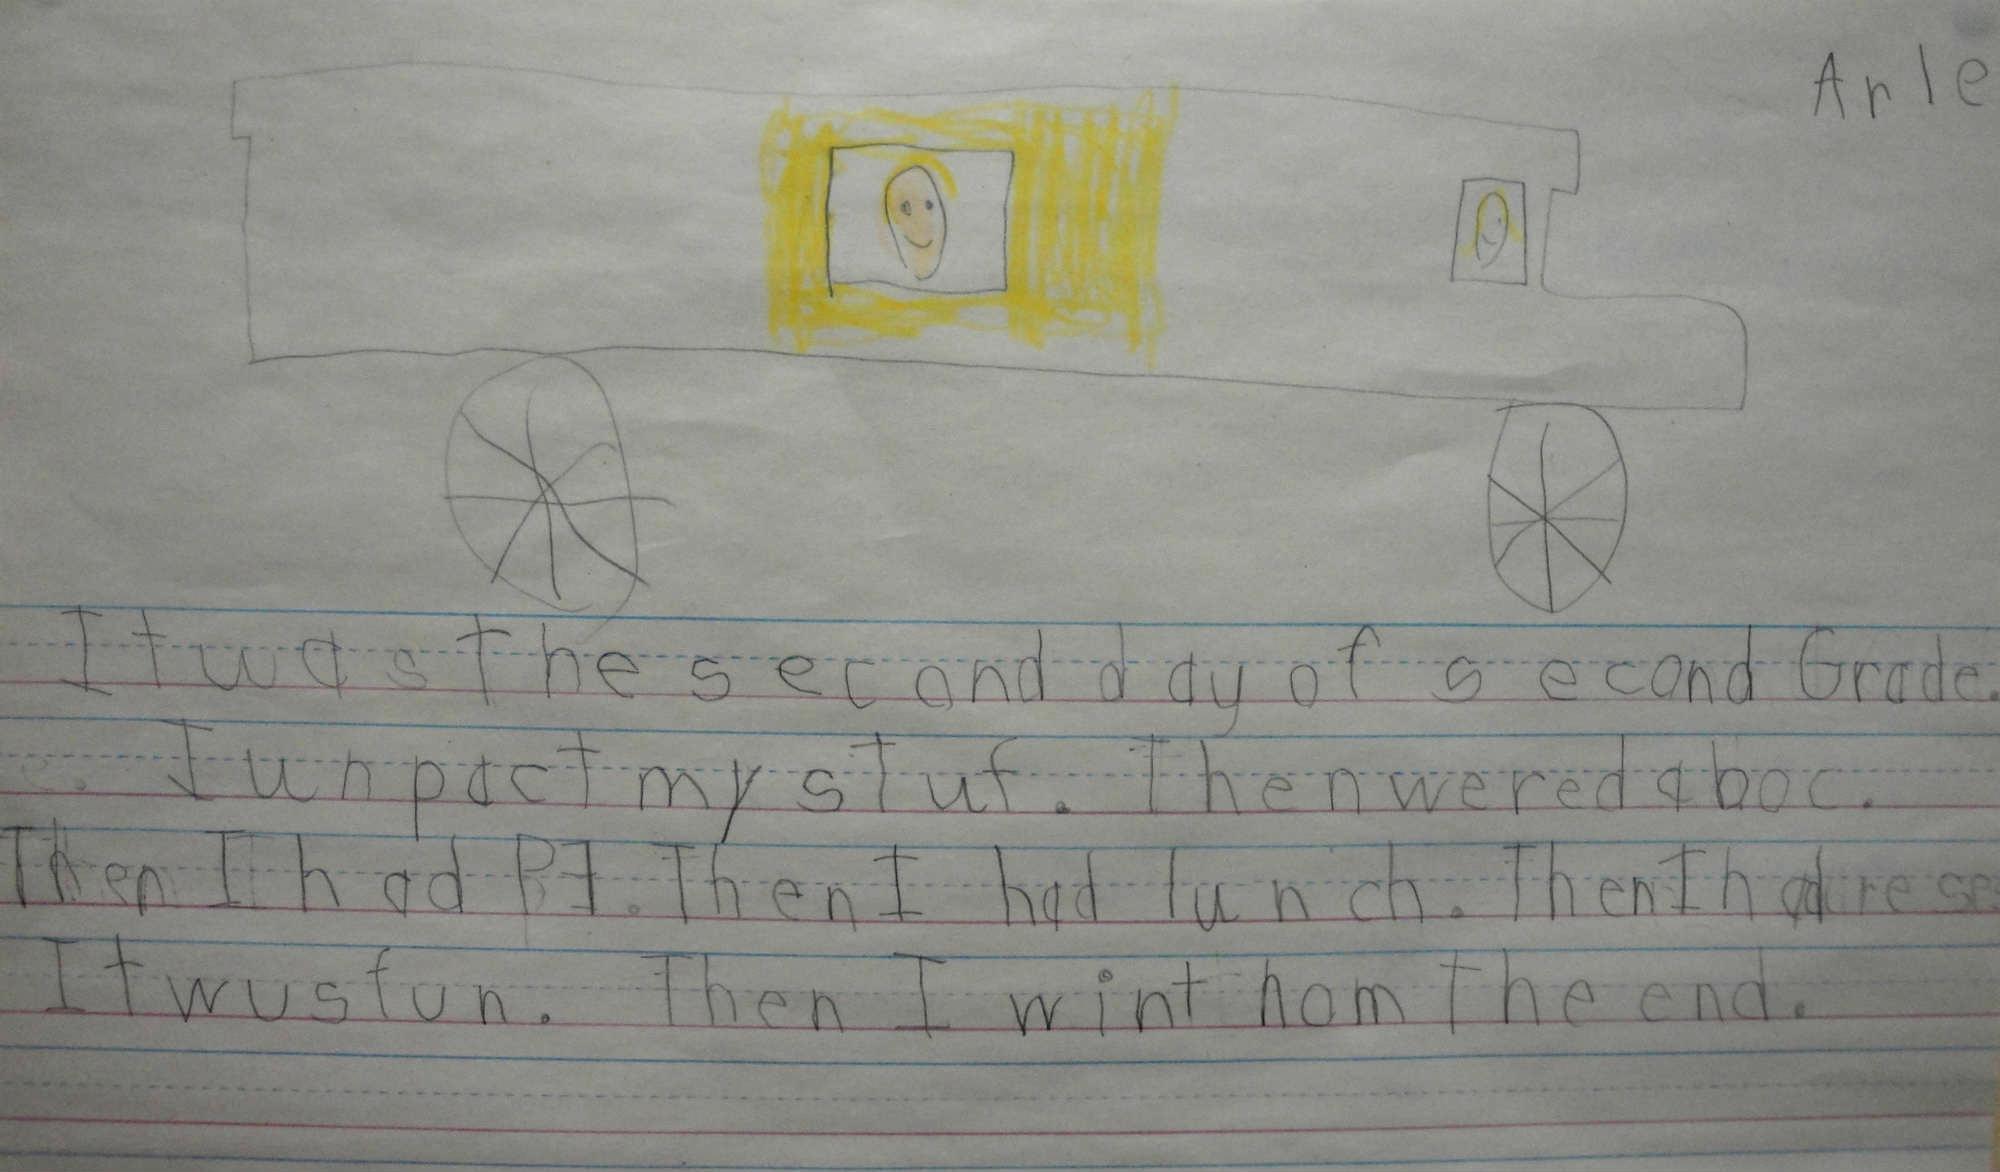 Arle
It was the second day of second Grade.
I unpact my stuf. Then we red a boc.
Then I had PJ. Then I had lunch. Then I had rese
It wus fun. Then I wint hom the end.